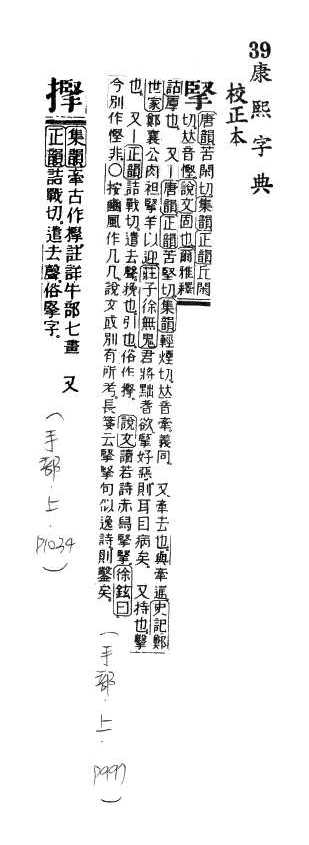 39 康熙字典
校正本
掔 唐韻苦閑切集韻正韻丘閑
切𠀤音慳說文固也爾雅釋
詁厚也又｜唐韻正韻苦堅切集韻輕煙切𠀤音牽義同又牽去也與牽通史記鄭
世家鄭襄公肉袒掔羊以迎莊子徐無鬼君將黜耆欲掔好惡則耳目病矣又持也掔
也又｜正韻詰戰切遣去聲挽也引也俗作㩃說文讀若詩赤舄掔掔徐鉉曰
今別作慳非○按豳風作几几說文或別有所考長箋云掔掔句似逸詩則鑿矣
(手部.上.P997)
㩃 集韻牽古作㩃註詳牛部七畫又
正韻詰戰切遣去聲俗掔字
(手部.上.P1034)